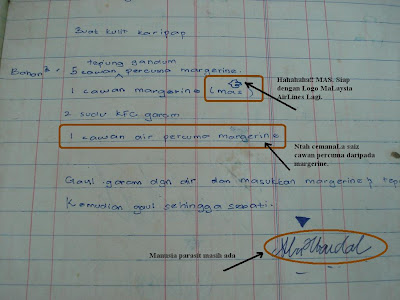 Buat kulit karipap
tepung gandum
Bahan² : 5 cawan percuma margerine.
1 cawan margerine (mas)
2 sudu KFC garam
1 cawan air percuma margerine
Gaul garam dgn air dan masukkan margerine & tepu
Kemudian gaul sehingga sebati.
Hahahaha!! MAS. Siap
dengan Logo MaLaysia
AirLines Lagi.
Ntah cemanaLa saiz
cawan percuma daripada
margerine.
Manusia parasit masih ada